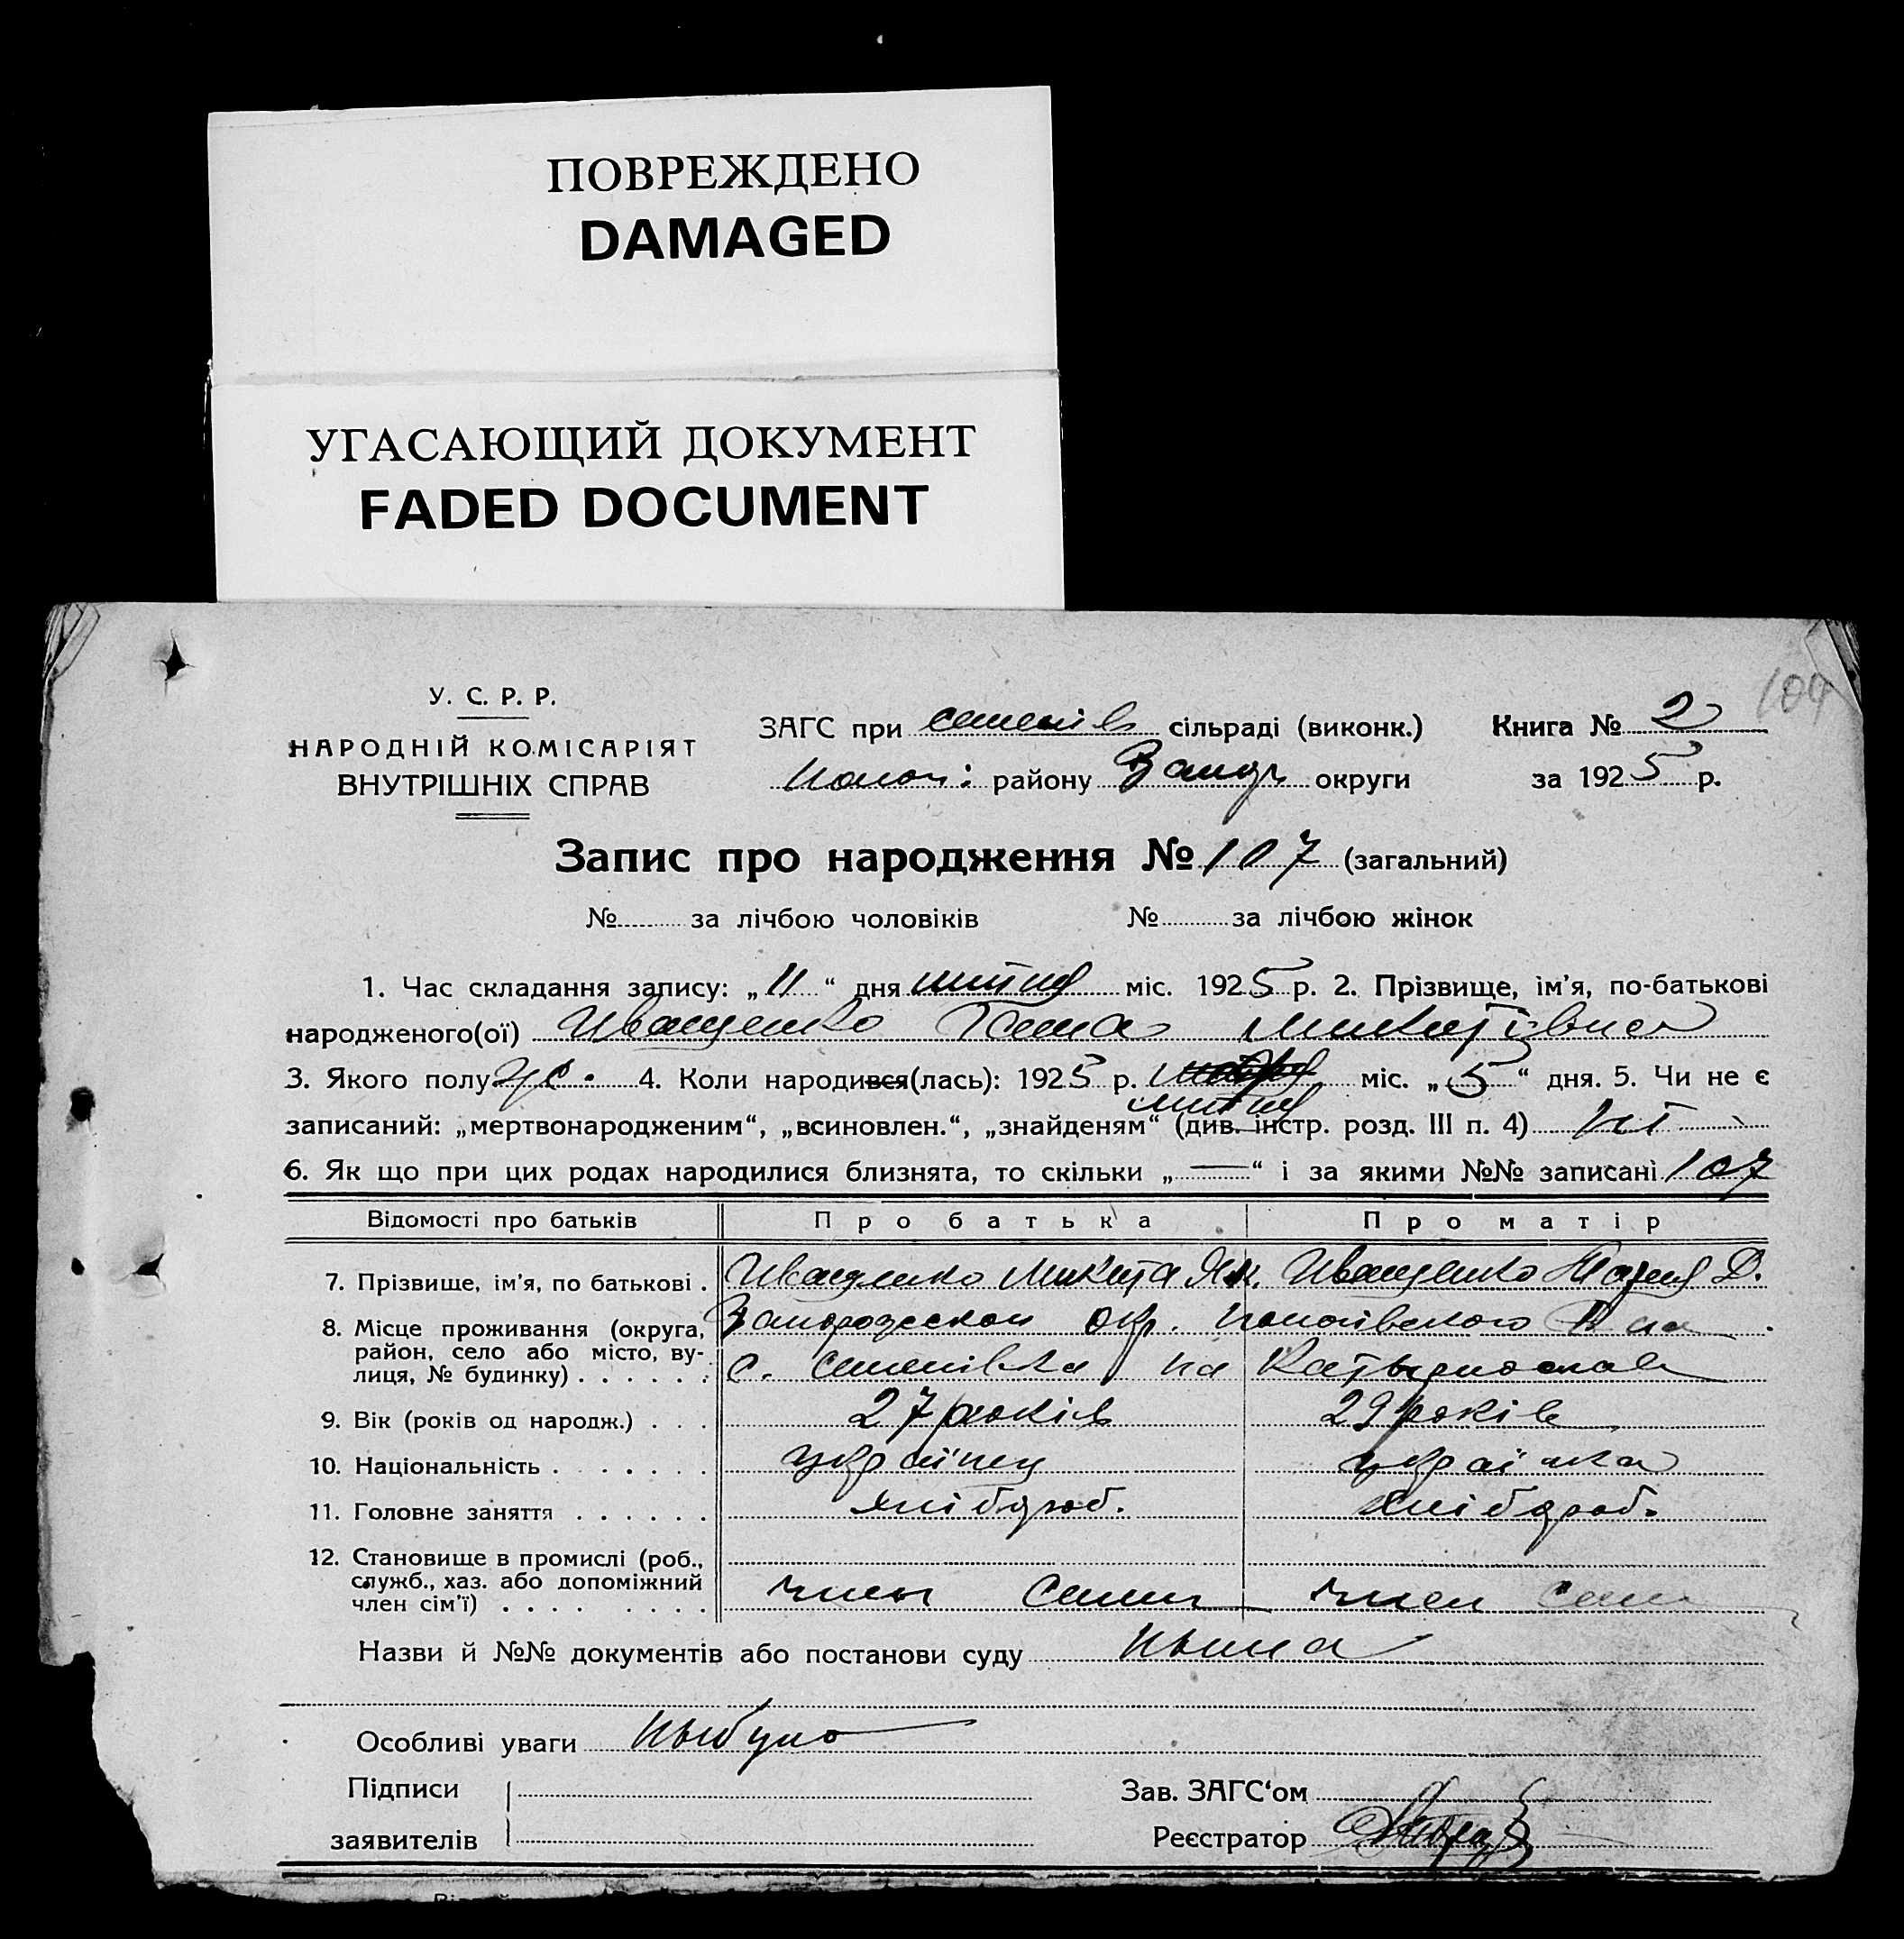 ПОВРЕЖДЕНО
DAMAGED
УГАСАЮЩИЙ ДОКУМЕНТ
FADED DOCUMENT
104
У. С. Р. Р.
НАРОДНІЙ КОМІСАРІЯТ
ВНУТРІШНІХ СПРАВ
ЗАГС при семенів сільраді (виконк.)
району Запор округи
Книга № 2
за 1925 р.
Запис про народження № 107 (загальний)
№ за лічбою чоловіків № за лічбою жінок
1. Час складання запису: „11“ дня липня міс. 1925 р. 2. Прізвище, ім'я, по-батькові
народженого(ої) Иващенко Микитівна
3. Якого полу ж. 4. Коли народився(лась): 1925 р. липня міс. „5“ дня. 5. Чи не є
записаний: „мертвонародженим“, „всиновлен.“, „знайденям“ (див. інстр. розд. III п. 4) ні
6. Як що при цих родах народилися близнята, то скільки „—“ і за якими №№ записані 107
Відомості про батьків Про батька Про матір
7. Прізвище, ім'я, по батькові . Иващенко Микита Як. Иващенко Мария Д.
8. Місце проживання (округа, район, село або місто, вулиця, № будинку) . . . . . .
окр.
с. Семенівка
9. Вік (років од народж.) . . . 27 років 29 років
10. Національність . . . . . . . українец українка
11. Головне заняття . . . . . . хлібороб. хлібороб.
12. Становище в промислі (роб., служб., хаз. або допоміжний член сім'ї) . . . . . . . . член семи член семи
Назви й №№ документів або постанови суду ныма
Особливі уваги ныбуло
Підписи
заявителів
Зав. ЗАГС'ом
Реєстратор